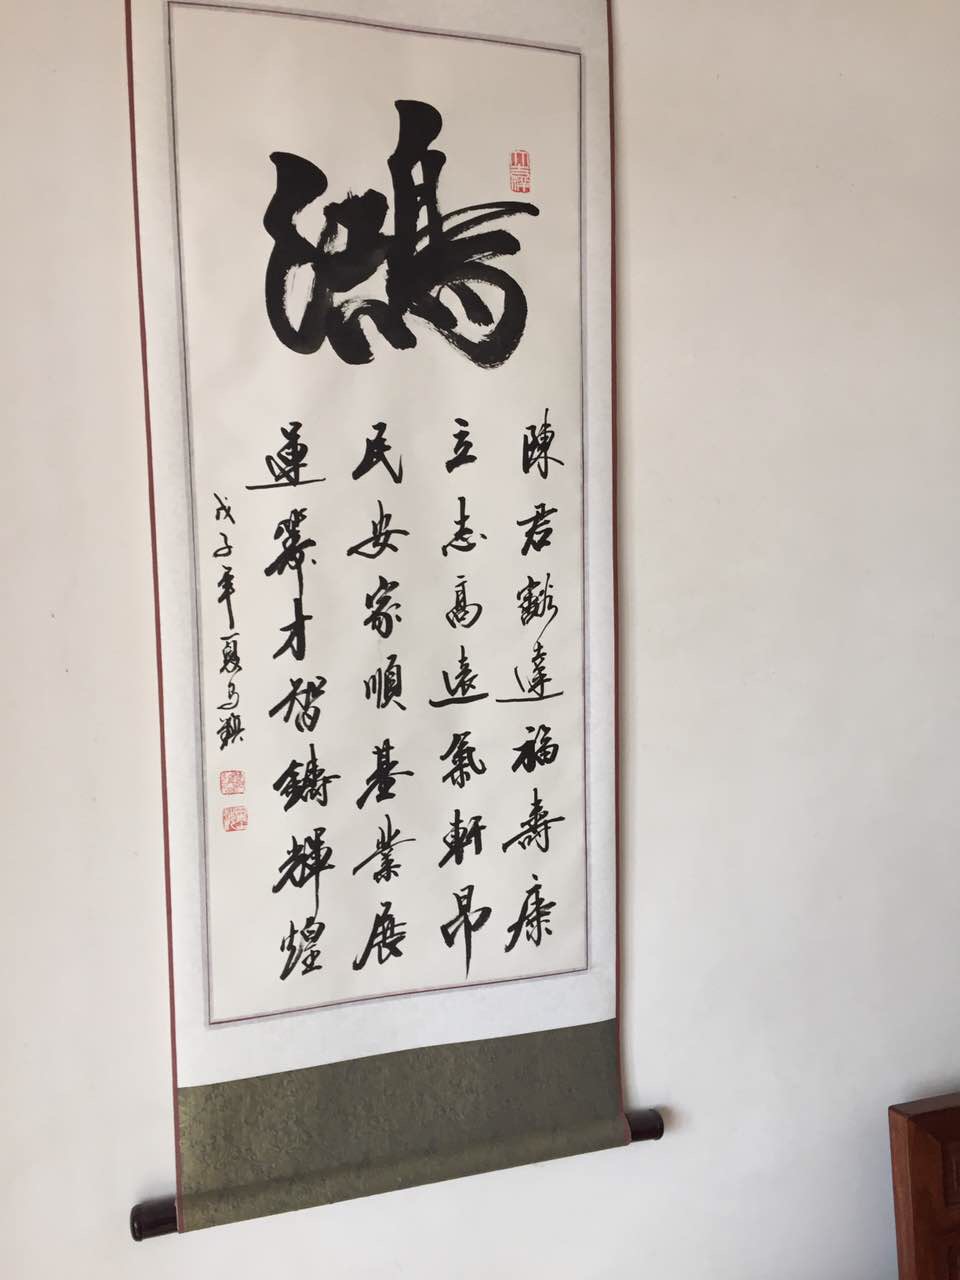 鴻
陳君豁達福壽康
立志高遠氣軒昂
民安家順基業展
運籌才智鑄輝煌
戊子年夏马骥